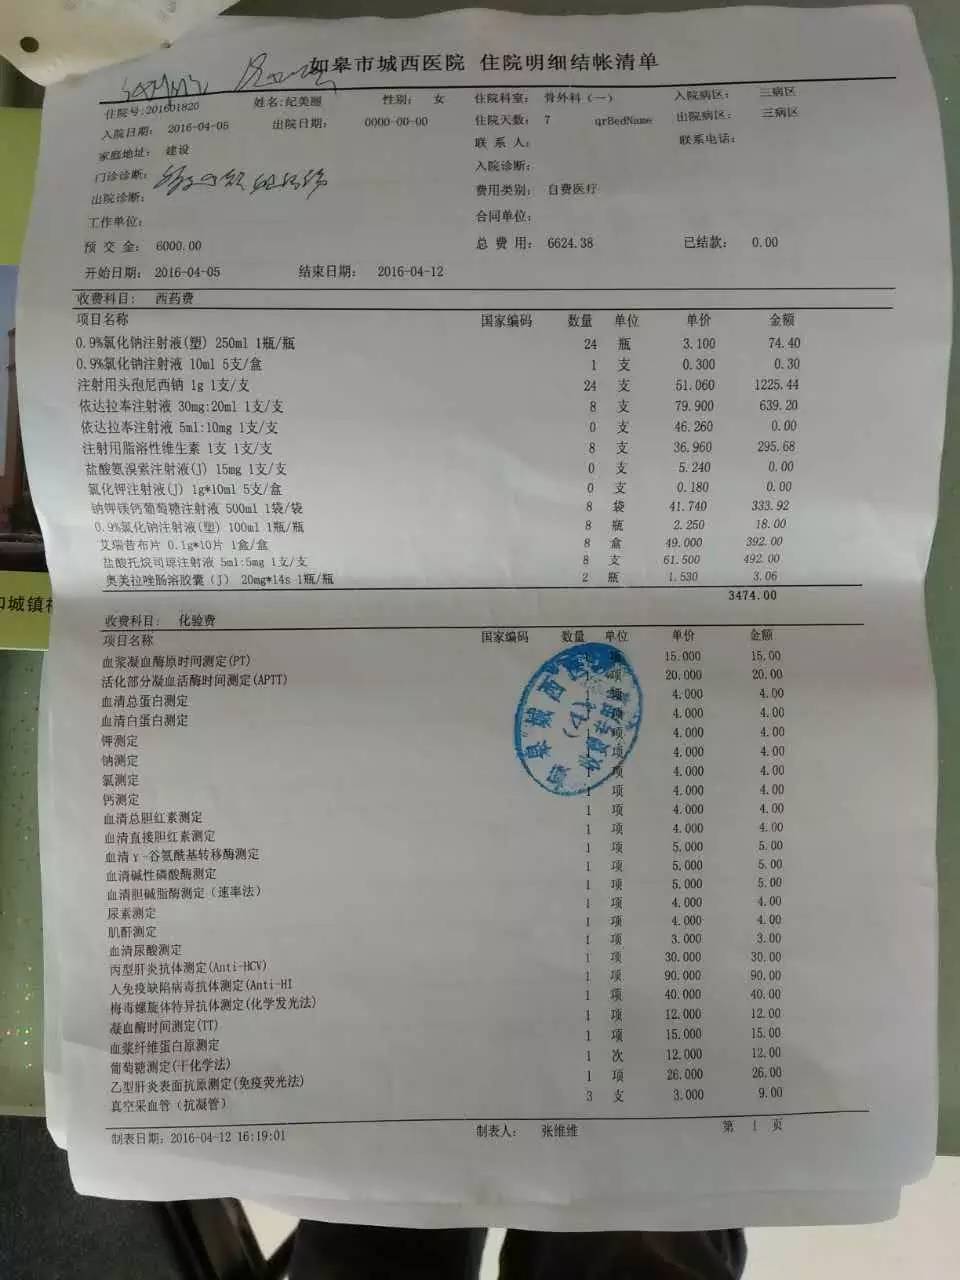 如皋市城西医院 住院明细结帐清单
住院号:201601820 姓名:纪美丽 性别: 女 住院科室: 骨外科(一) 入院病区: 三病区
入院日期: 2016-04-05 出院日期: 0000-00-00 住院天数: 7 qrBedName 出院病区: 三病区
家庭地址: 建设 联 系 人: 联系电话:
门诊诊断: 入院诊断:
出院诊断: 费用类别: 自费医疗
工作单位: 合同单位:
预 交 金: 6000.00 总 费 用: 6624.38 已结款: 0.00
开始日期: 2016-04-05 结束日期: 2016-04-12
收费科目: 西药费
项目名称 国家编码 数量 单位 单价 金额
0.9%氯化钠注射液(塑) 250ml 1瓶/瓶 24 瓶 3.100 74.40
0.9%氯化钠注射液 10ml 5支/盒 1 支 0.300 0.30
注射用头孢尼西钠 1g 1支/支 24 支 51.060 1225.44
依达拉奉注射液 30mg:20ml 1支/支 8 支 79.900 639.20
依达拉奉注射液 5ml:10mg 1支/支 0 支 46.260 0.00
注射用脂溶性维生素 1支 1支/支 8 支 36.960 295.68
盐酸氨溴索注射液(J) 15mg 1支/支 0 支 5.240 0.00
氯化钾注射液(J) 1g*10ml 5支/盒 0 支 0.180 0.00
钠钾镁钙葡萄糖注射液 500ml 1袋/袋 8 袋 41.740 333.92
0.9%氯化钠注射液(塑) 100ml 1瓶/瓶 8 瓶 2.250 18.00
艾瑞昔布片 0.1g*10片 1盒/盒 8 盒 49.000 392.00
盐酸托烷司琼注射液 5ml:5mg 1支/支 8 支 61.500 492.00
奥美拉唑肠溶胶囊(J) 20mg*14s 1瓶/瓶 2 瓶 1.530 3.06
3474.00
收费科目: 化验费
项目名称 国家编码 数量 单位 单价 金额
血浆凝血酶原时间测定(PT) 项 15.000 15.00
活化部分凝血活酶时间测定(APTT) 1 项 20.000 20.00
血清总蛋白测定 1 项 4.000 4.00
血清白蛋白测定 项 4.000 4.00
钾测定 项 4.000 4.00
钠测定 1 项 4.000 4.00
氯测定 1 项 4.000 4.00
钙测定 1 项 4.000 4.00
血清总胆红素测定 1 项 4.000 4.00
血清直接胆红素测定 1 项 4.000 4.00
血清γ-谷氨酰基转移酶测定 1 项 5.000 5.00
血清碱性磷酸酶测定 1 项 5.000 5.00
血清胆碱脂酶测定(速率法) 1 项 5.000 5.00
尿素测定 1 项 4.000 4.00
肌酐测定 1 项 4.000 4.00
血清尿酸测定 1 项 3.000 3.00
丙型肝炎抗体测定(Anti-HCV) 1 项 30.000 30.00
人免疫缺陷病毒抗体测定(Anti-HI 1 项 90.000 90.00
梅毒螺旋体特异抗体测定(化学发光法) 1 项 40.000 40.00
凝血酶时间测定(TT) 1 项 12.000 12.00
血浆纤维蛋白原测定 1 项 15.000 15.00
葡萄糖测定(干化学法) 1 次 12.000 12.00
乙型肝炎表面抗原测定(免疫荧光法) 1 项 26.000 26.00
真空采血管(抗凝管) 3 支 3.000 9.00
制表日期: 2016-04-12 16:19:01 制表人: 张维维 第 1 页